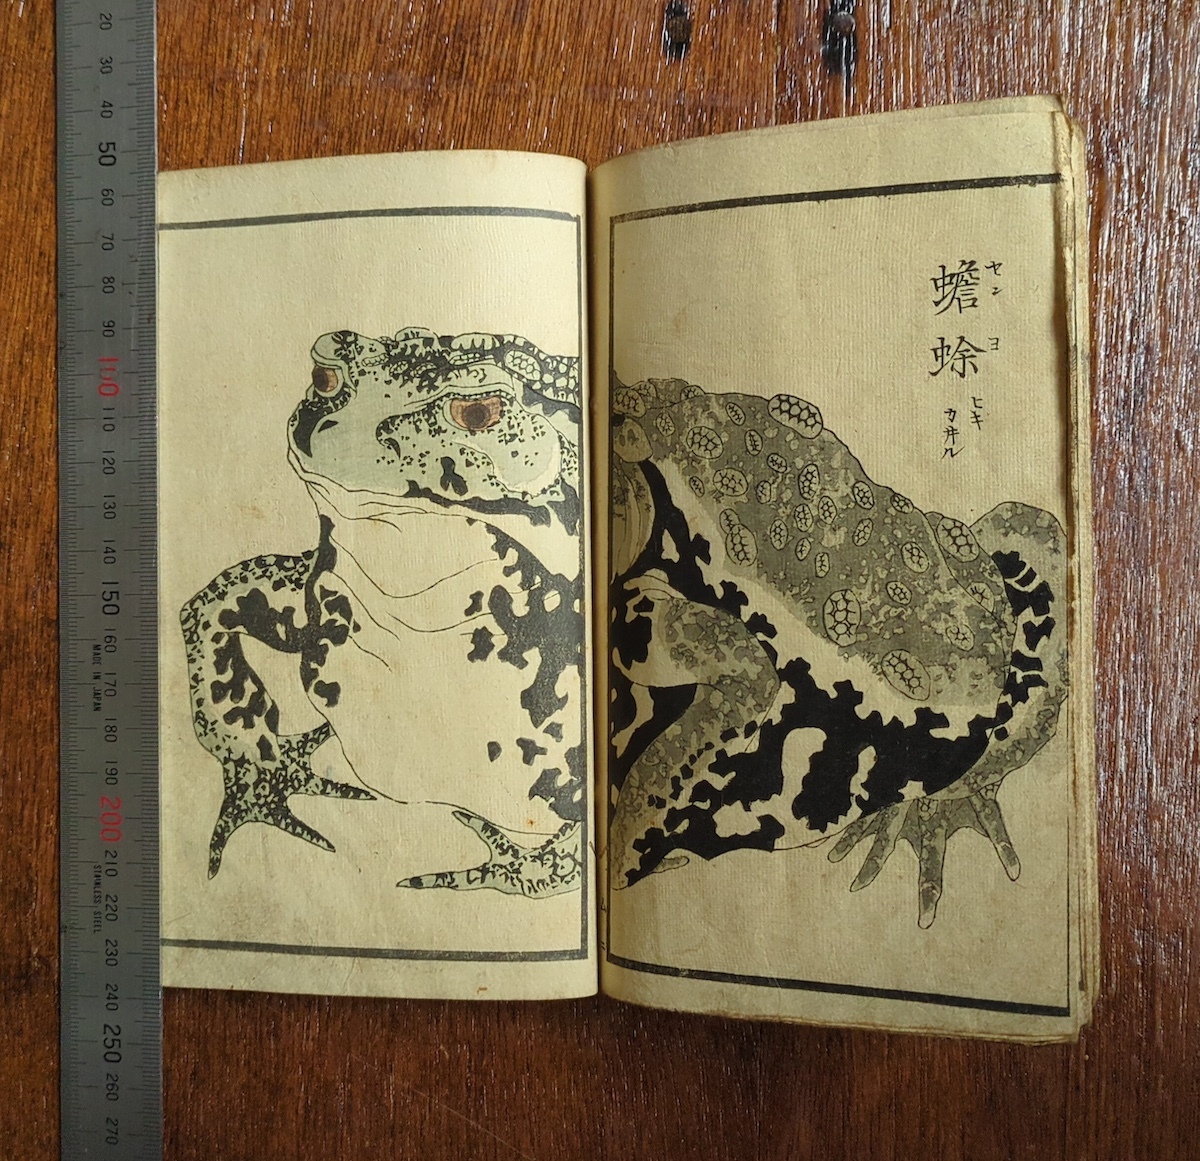 蟾蜍
セン ヨ
ヒキ
カヰル
20
30
40
50
60
70
80
90
100
110
120
130
140
150
160
MADE IN JAPAN
170
180
190
200
210
STAINLESS STEEL
220
230
240
250
260
270